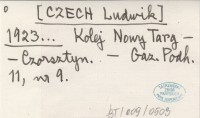 [CZECH Ludwik]
1923... Kolej Nowy Targ –
– Czorsztyn. – Gaz. Podh.
11, nr 9.
AT/009/0503